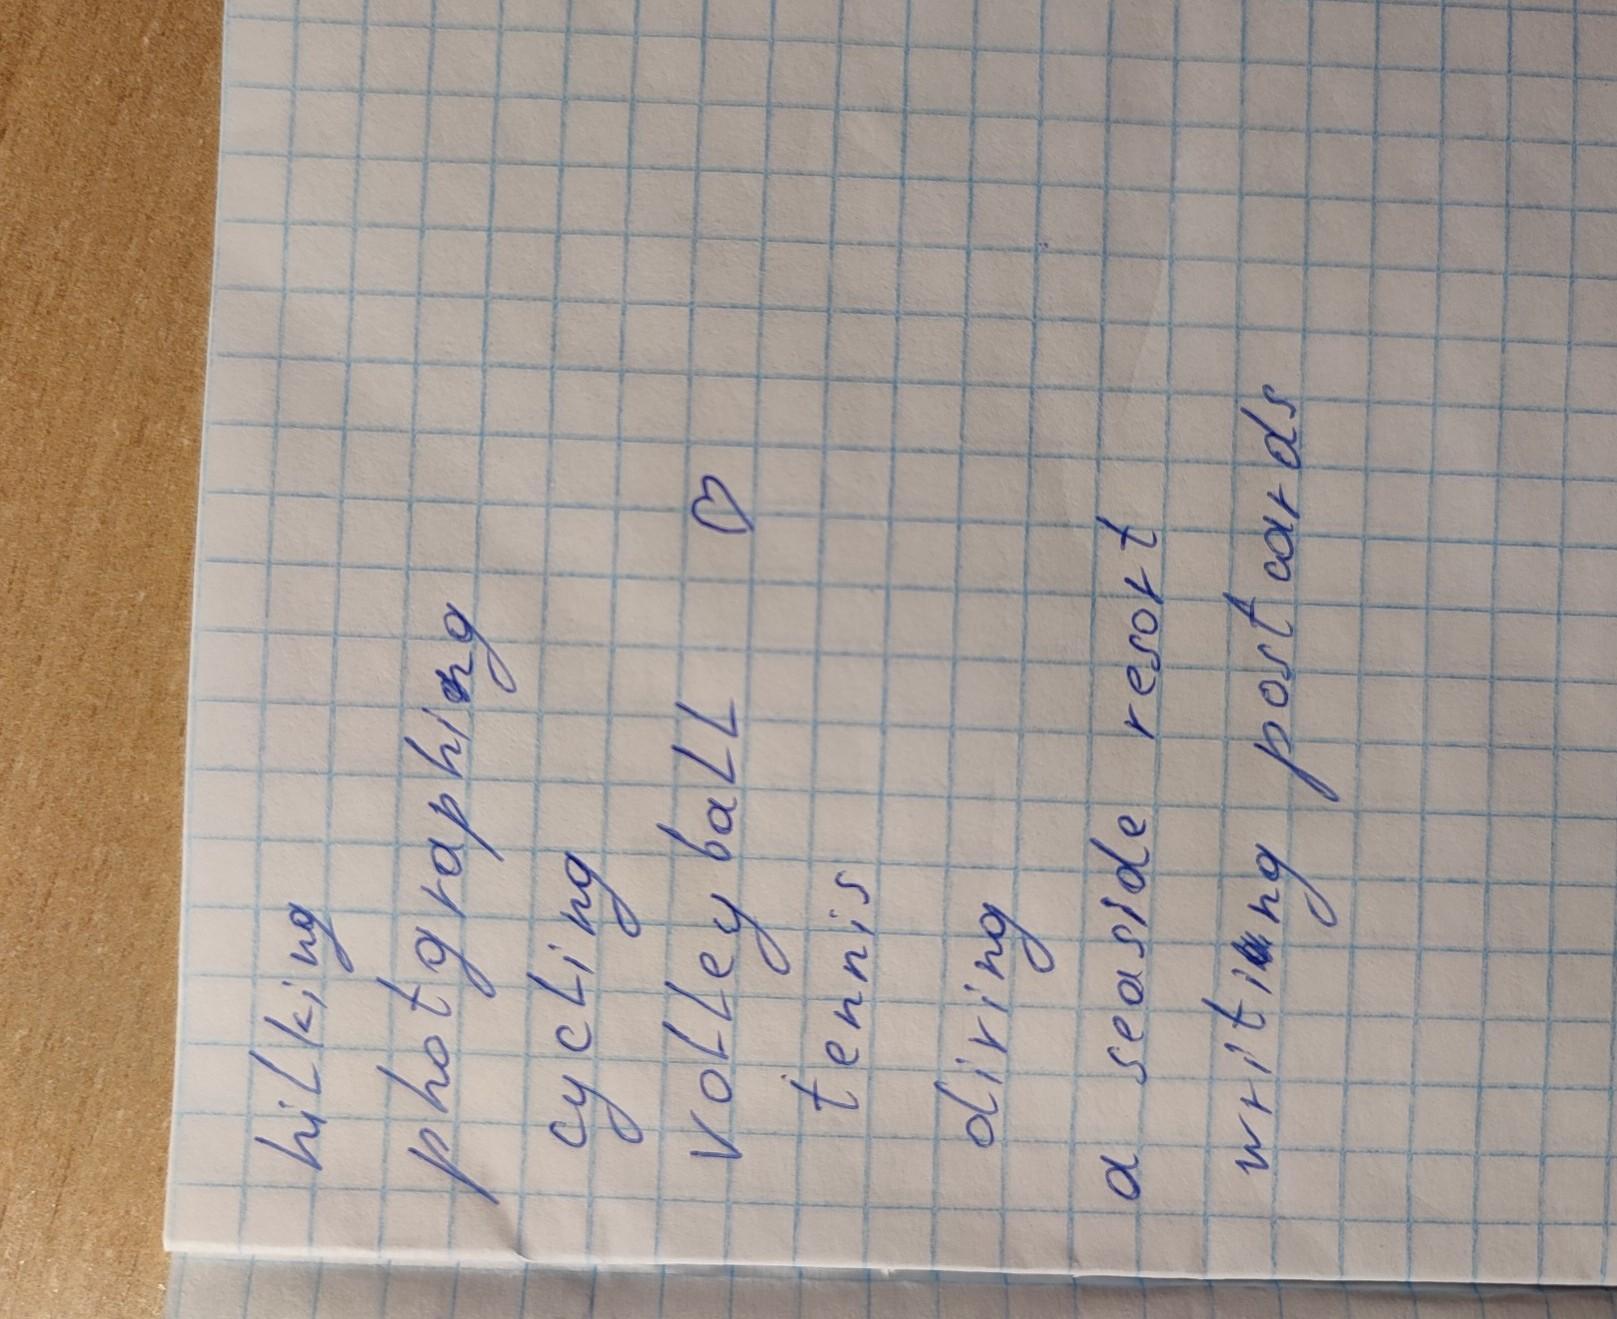 hilking
photgraphing
cycling
volleyball ♡
tennis
diving
a seaside resort
writing postcards